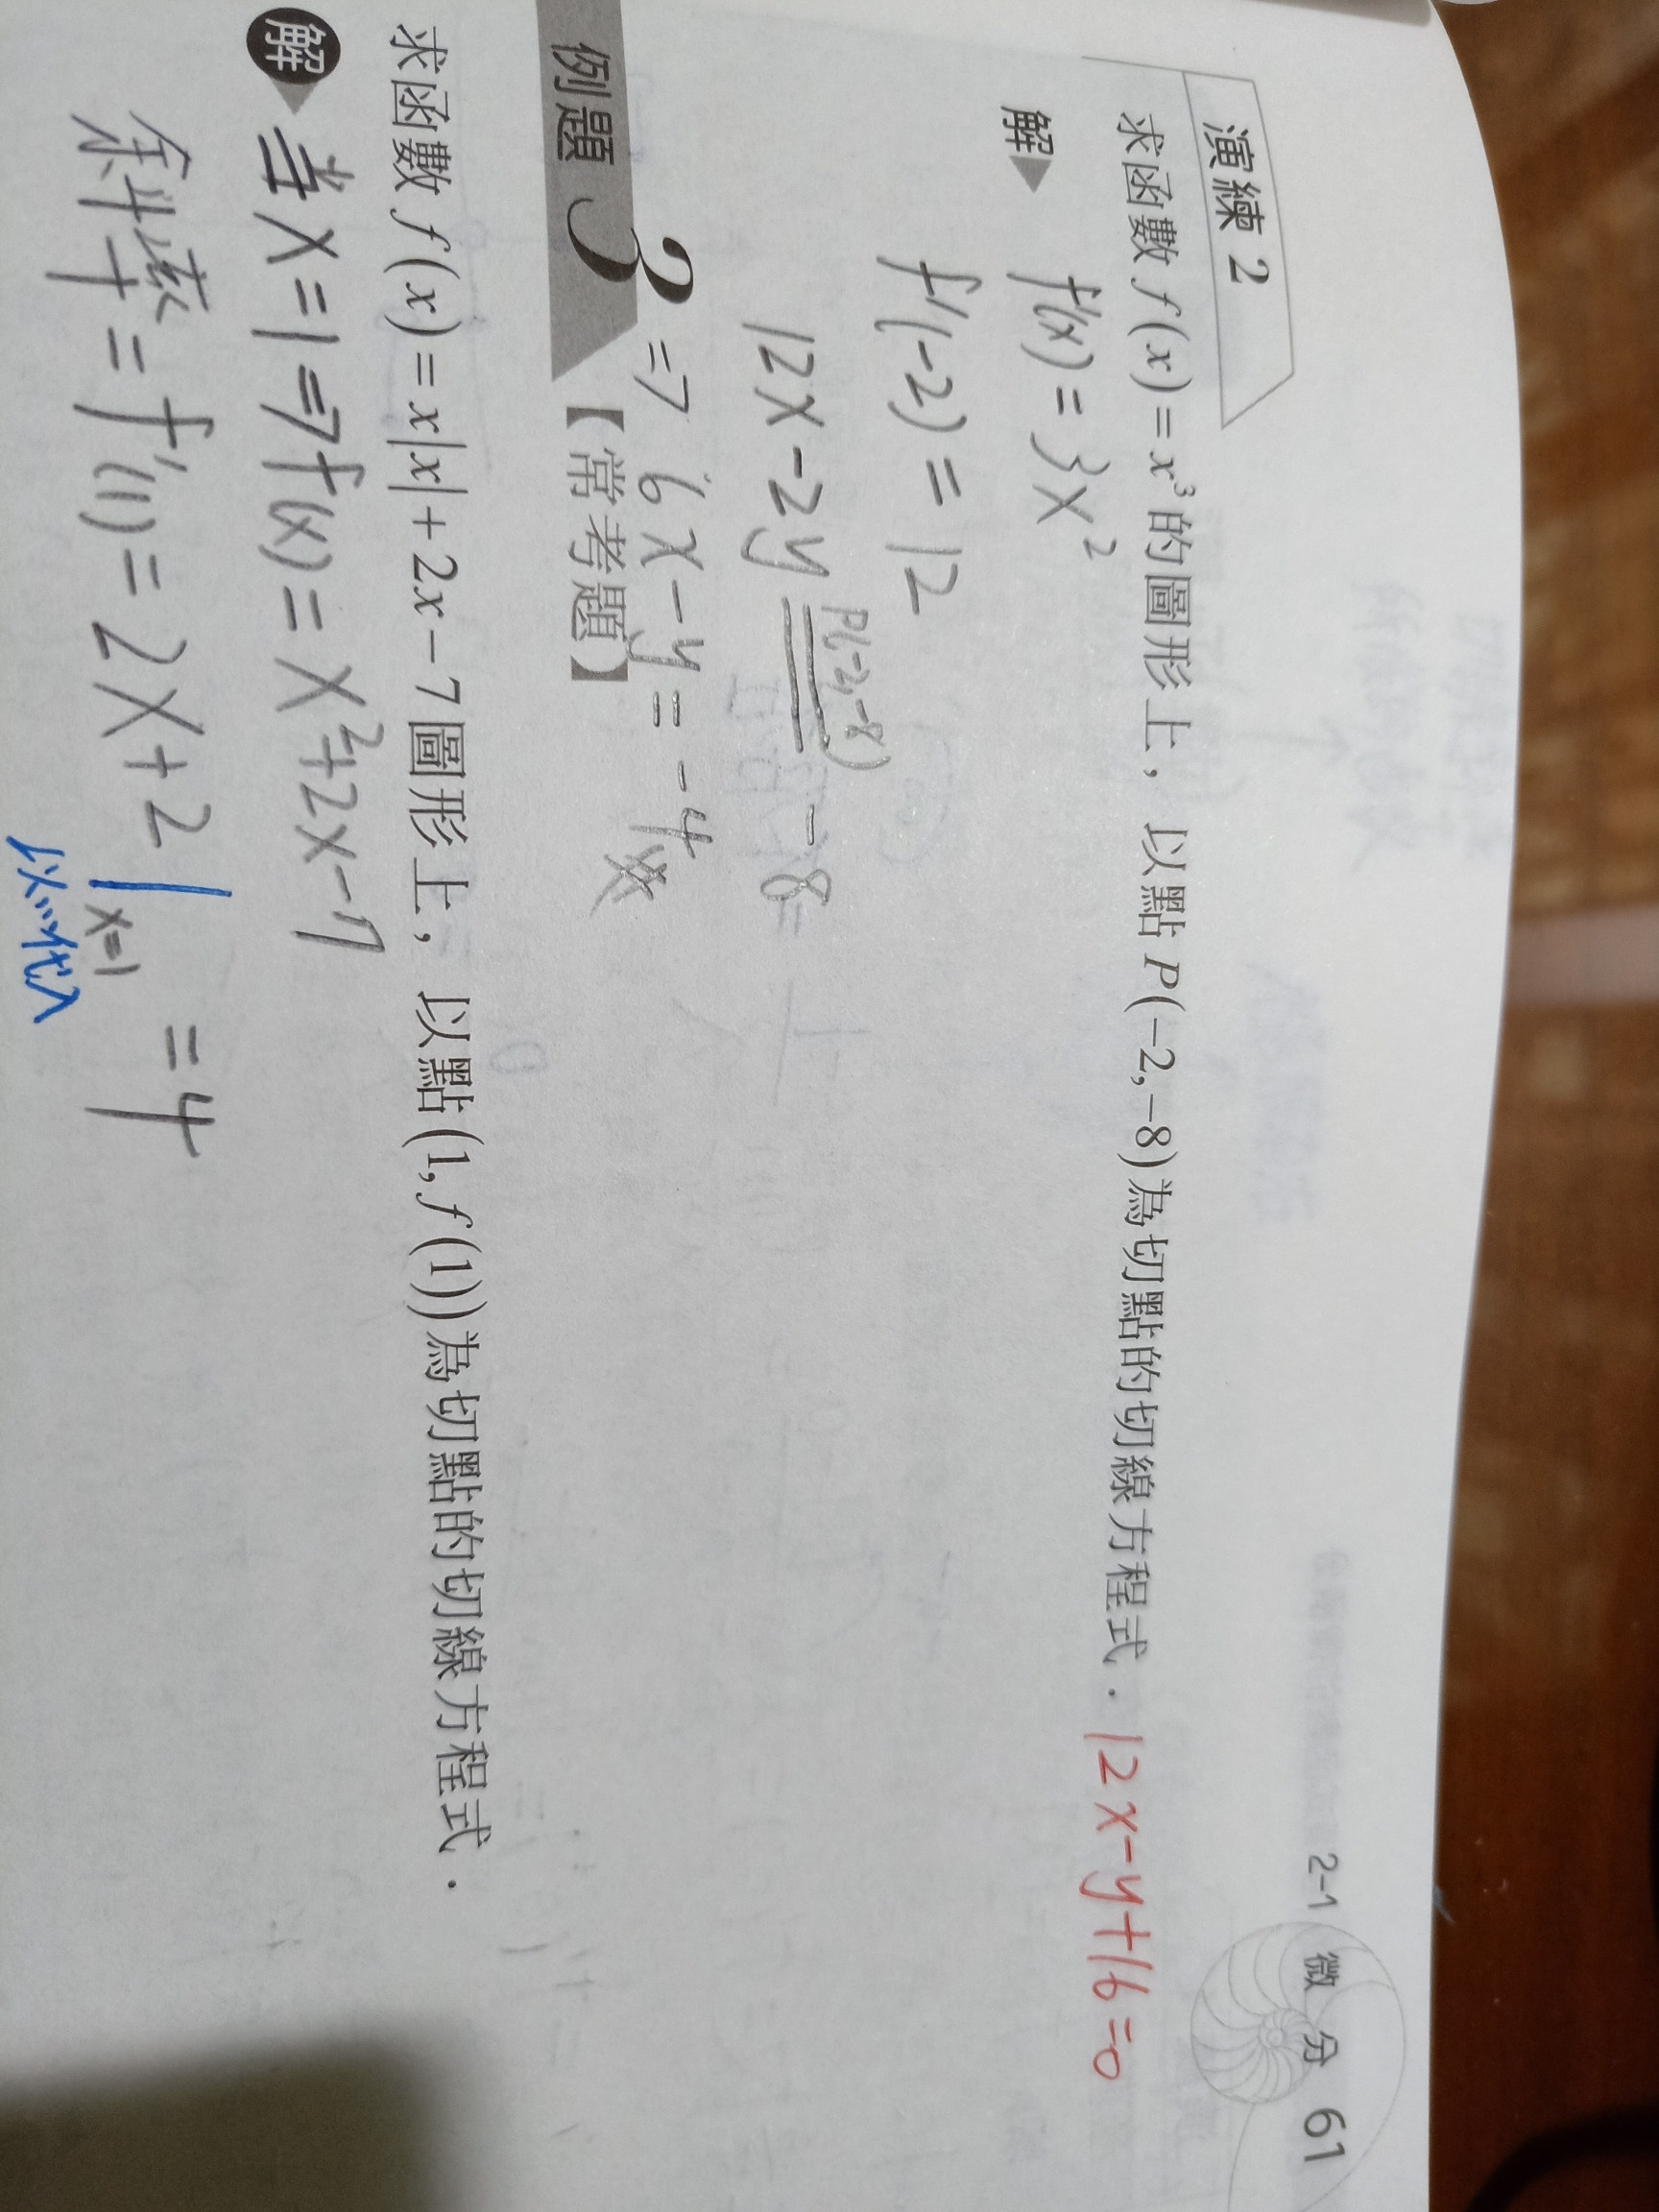 2-1 微 分 61
演練 2
求函數 f(x)=x³的圖形上，以點 P(−2,−8)為切點的切線方程式． 12x-y+16=0
解▶ f'(x) = 3x²
f'(-2) = 12
P(-2,-8)
12x-2y = -8
=7 6x-y = -4
例題 3 【常考題】
求函數 f(x)=x|x|+2x−7圖形上，以點(1, f(1))為切點的切線方程式．
解▶ 若x=1=7f(x)=x²+2x-7
斜率f=f'(1)=2x+2|x=1 =4
以...代入